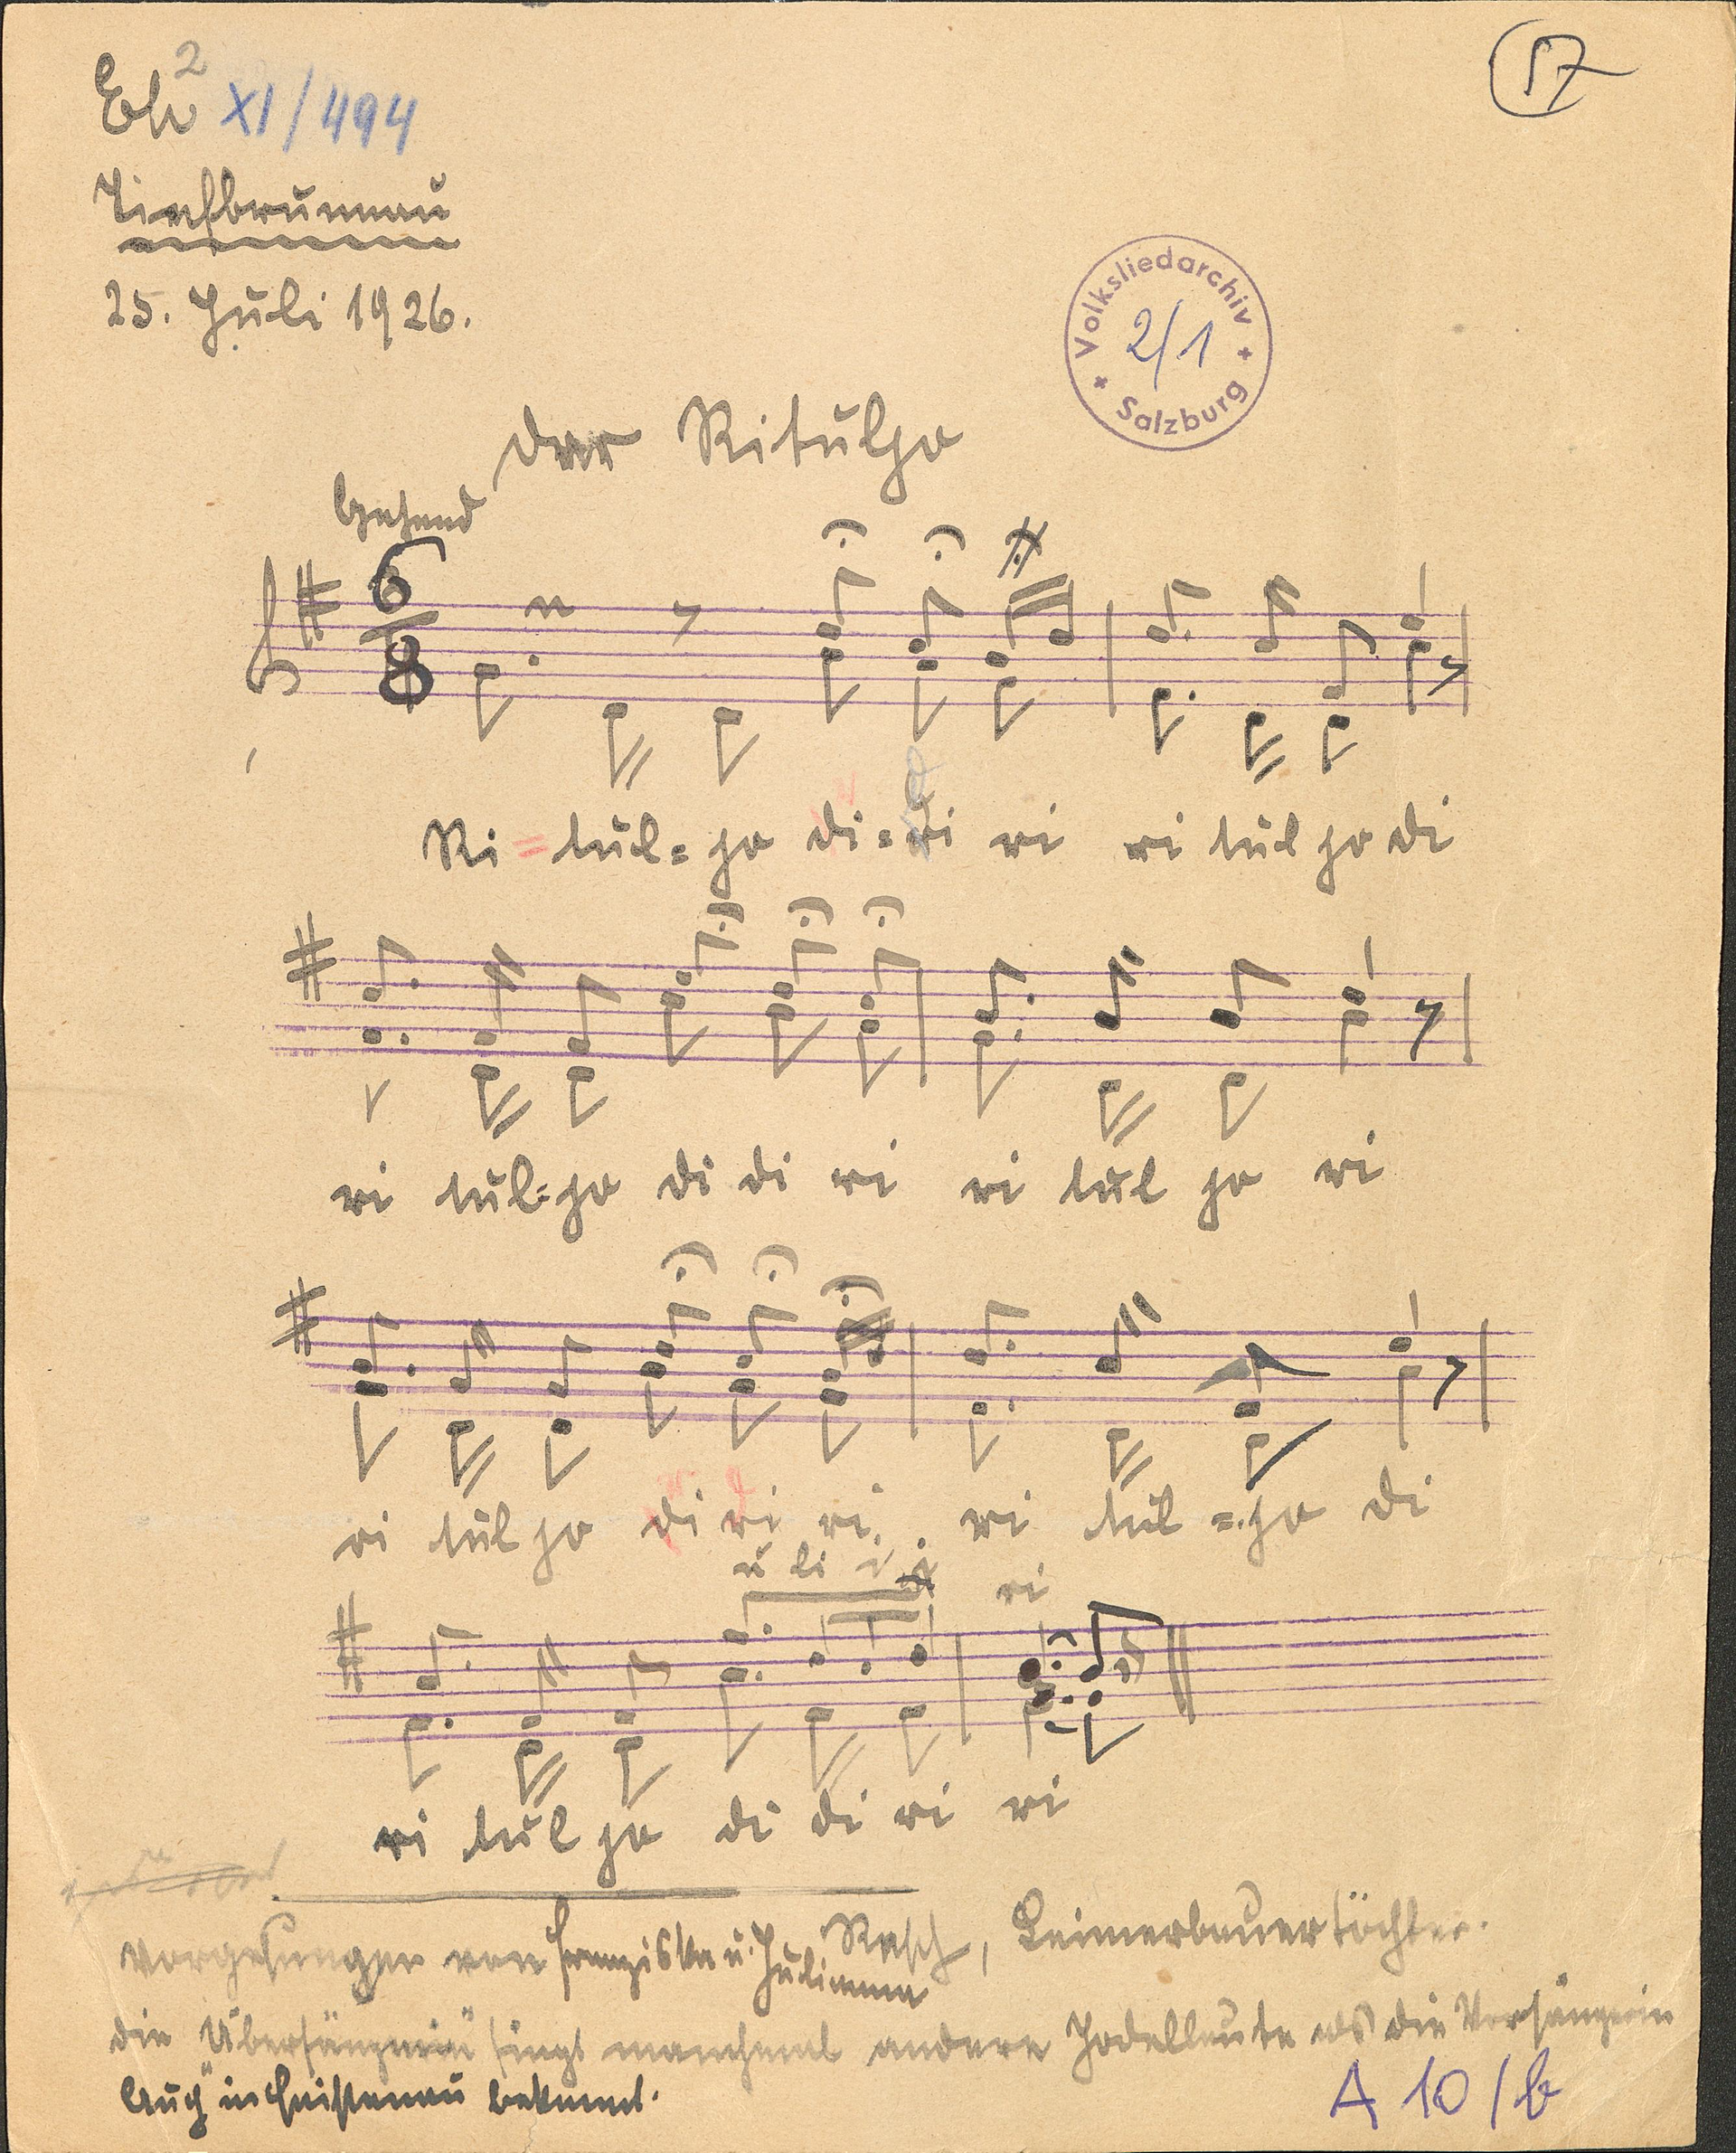 Eh² XI/494
57
Tiefbrunnau
25. Juli 1926.
Volksliedarchiv
2/1
Salzburg
Der Rituljo
Gehend
6/8
Ri = tul = jo di = ri ri ri tul jo di
ri tul = jo di di ri ri tul jo ri
ri tul jo di ri ri. ri tul = jo di
u li i ri
ri tul jo di di ri ri
Vorgesungen von Franziska u. Julianna Resch, Leimerbauertöchter.
Die "Übersängerin" singt manchmal andere Jodellaute als die Vorsängerin
Auch in Faistenau bekannt.
A 10/b